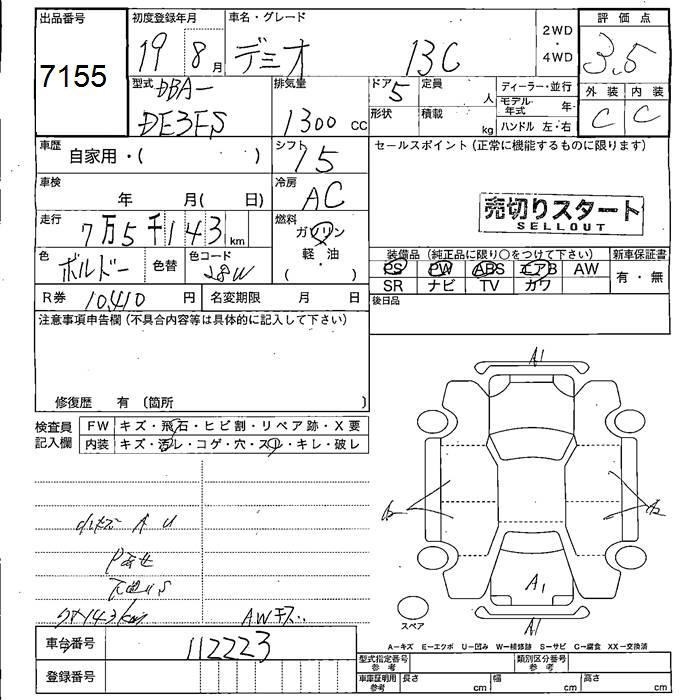 出品番号 初度登録年月 車名・グレード 2WD・4WD 評価点
7155 19年8月 デミオ 13C 3.5
型式 DBA-DE3FS 排気量 1300cc ドア 5 定員 人 ディーラー・並行 外装 内装
形状 積載 kg モデル年式 年 C C
ハンドル 左・右
車歴 自家用・( ) シフト 15 セールスポイント(正常に機能するものに限ります)
車検 年 月( 日) 冷房 AC
売切りスタート
SELLOUT
走行 7万5千143km 燃料 ガソリン・軽・油 ( )
色 ボルドー 色替 色コード 28W
装備品(純正品に限り○をつけて下さい) 新車保証書
PS PW ABS エアB AW 有・無
SR ナビ TV カワ
R券 10410円 名変期限 月 日 後日品
注意事項申告欄(不具合内容等は具体的に記入して下さい)
修復歴 有(箇所 )
検査員記入欄 FW キズ・飛石・ヒビ割・リペア跡・X要
内装 キズ・汚レ・コゲ・穴・スレ・キレ・破レ
A1
A U
A1
AWキズ
スペア
A1
A−キズ E−エクボ U−凹み W−補修跡 S−サビ C−腐食 XX−交換済
車台番号 112223
型式指定番号 参考 類別区分番号 参考
登録番号
車庫証明用 参考 長さ cm 幅 cm 高さ cm